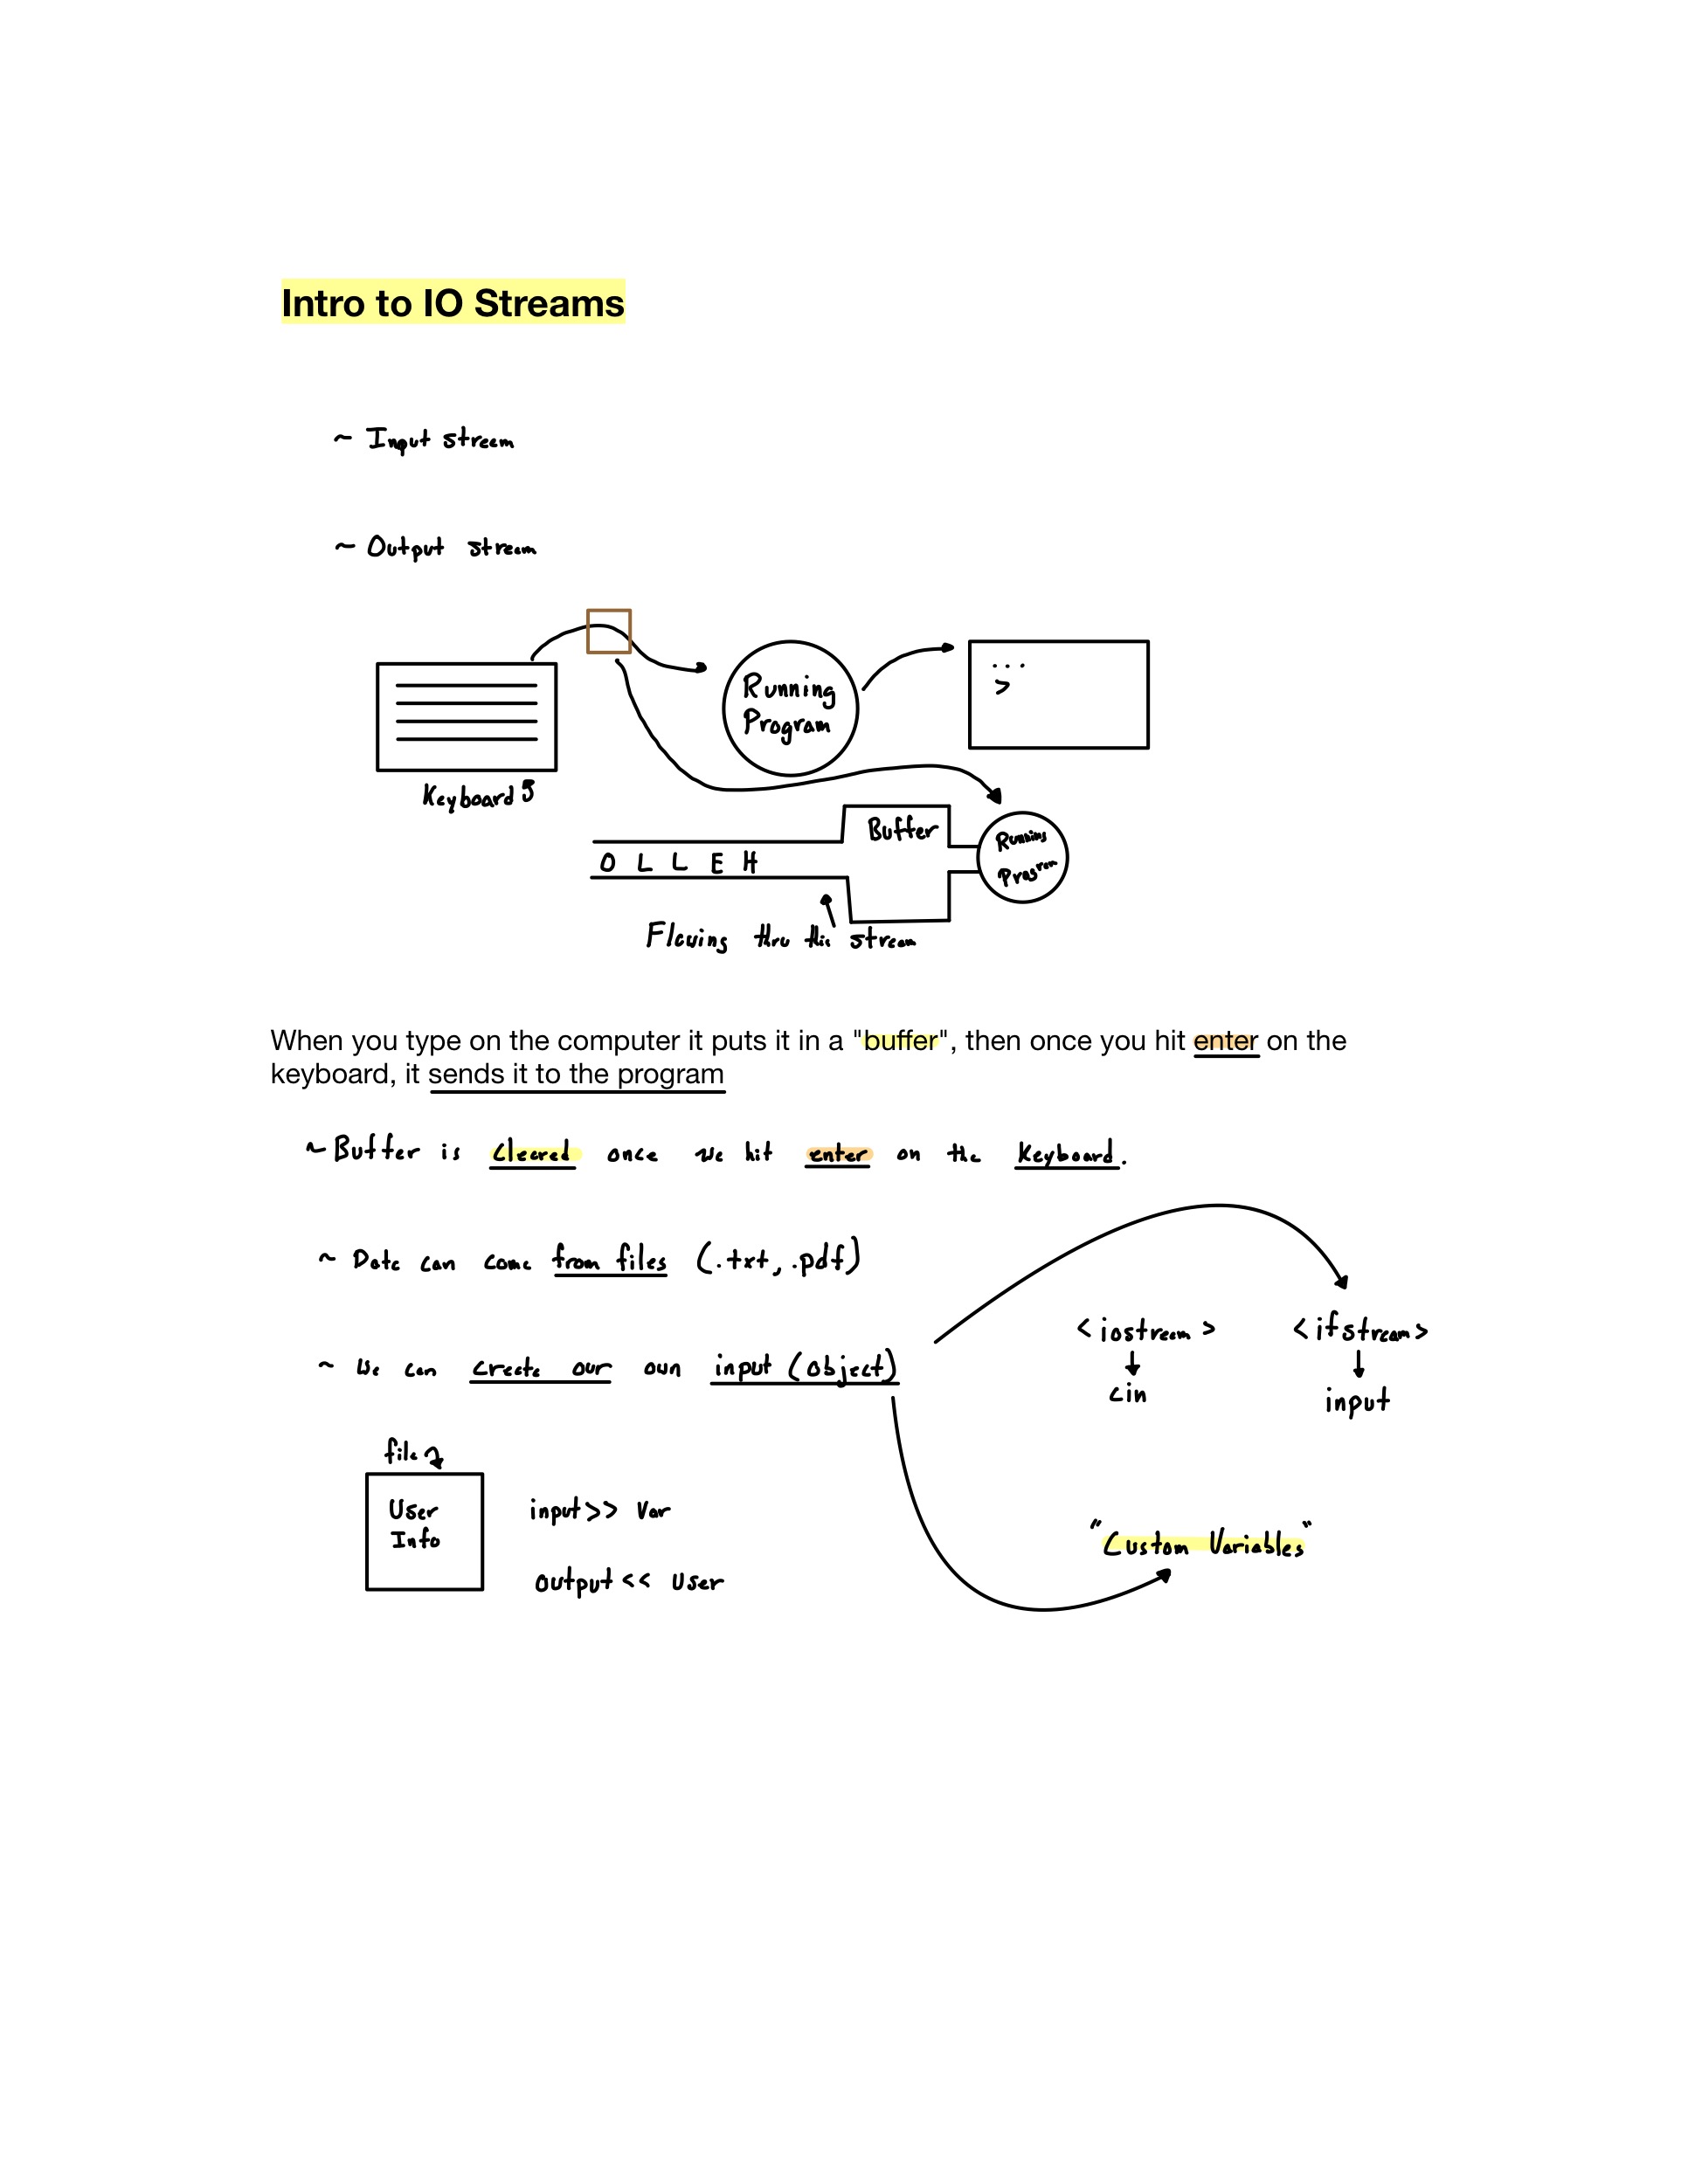 Intro to IO Streams
~ Input stream
~ Output stream
Running
Program
...
>
Keyboard
Buffer
O L L E H
Running
Program
Flowing thru this stream
When you type on the computer it puts it in a "buffer", then once you hit enter on the
keyboard, it sends it to the program
~ Buffer is cleared once we hit enter on the Keyboard.
~ Data can come from files (.txt, .pdf)
~ We can create our own input (object)
<iostream> <ifstream>
cin input
file
User
Info
input >> var
output << user
"Custom Variables"